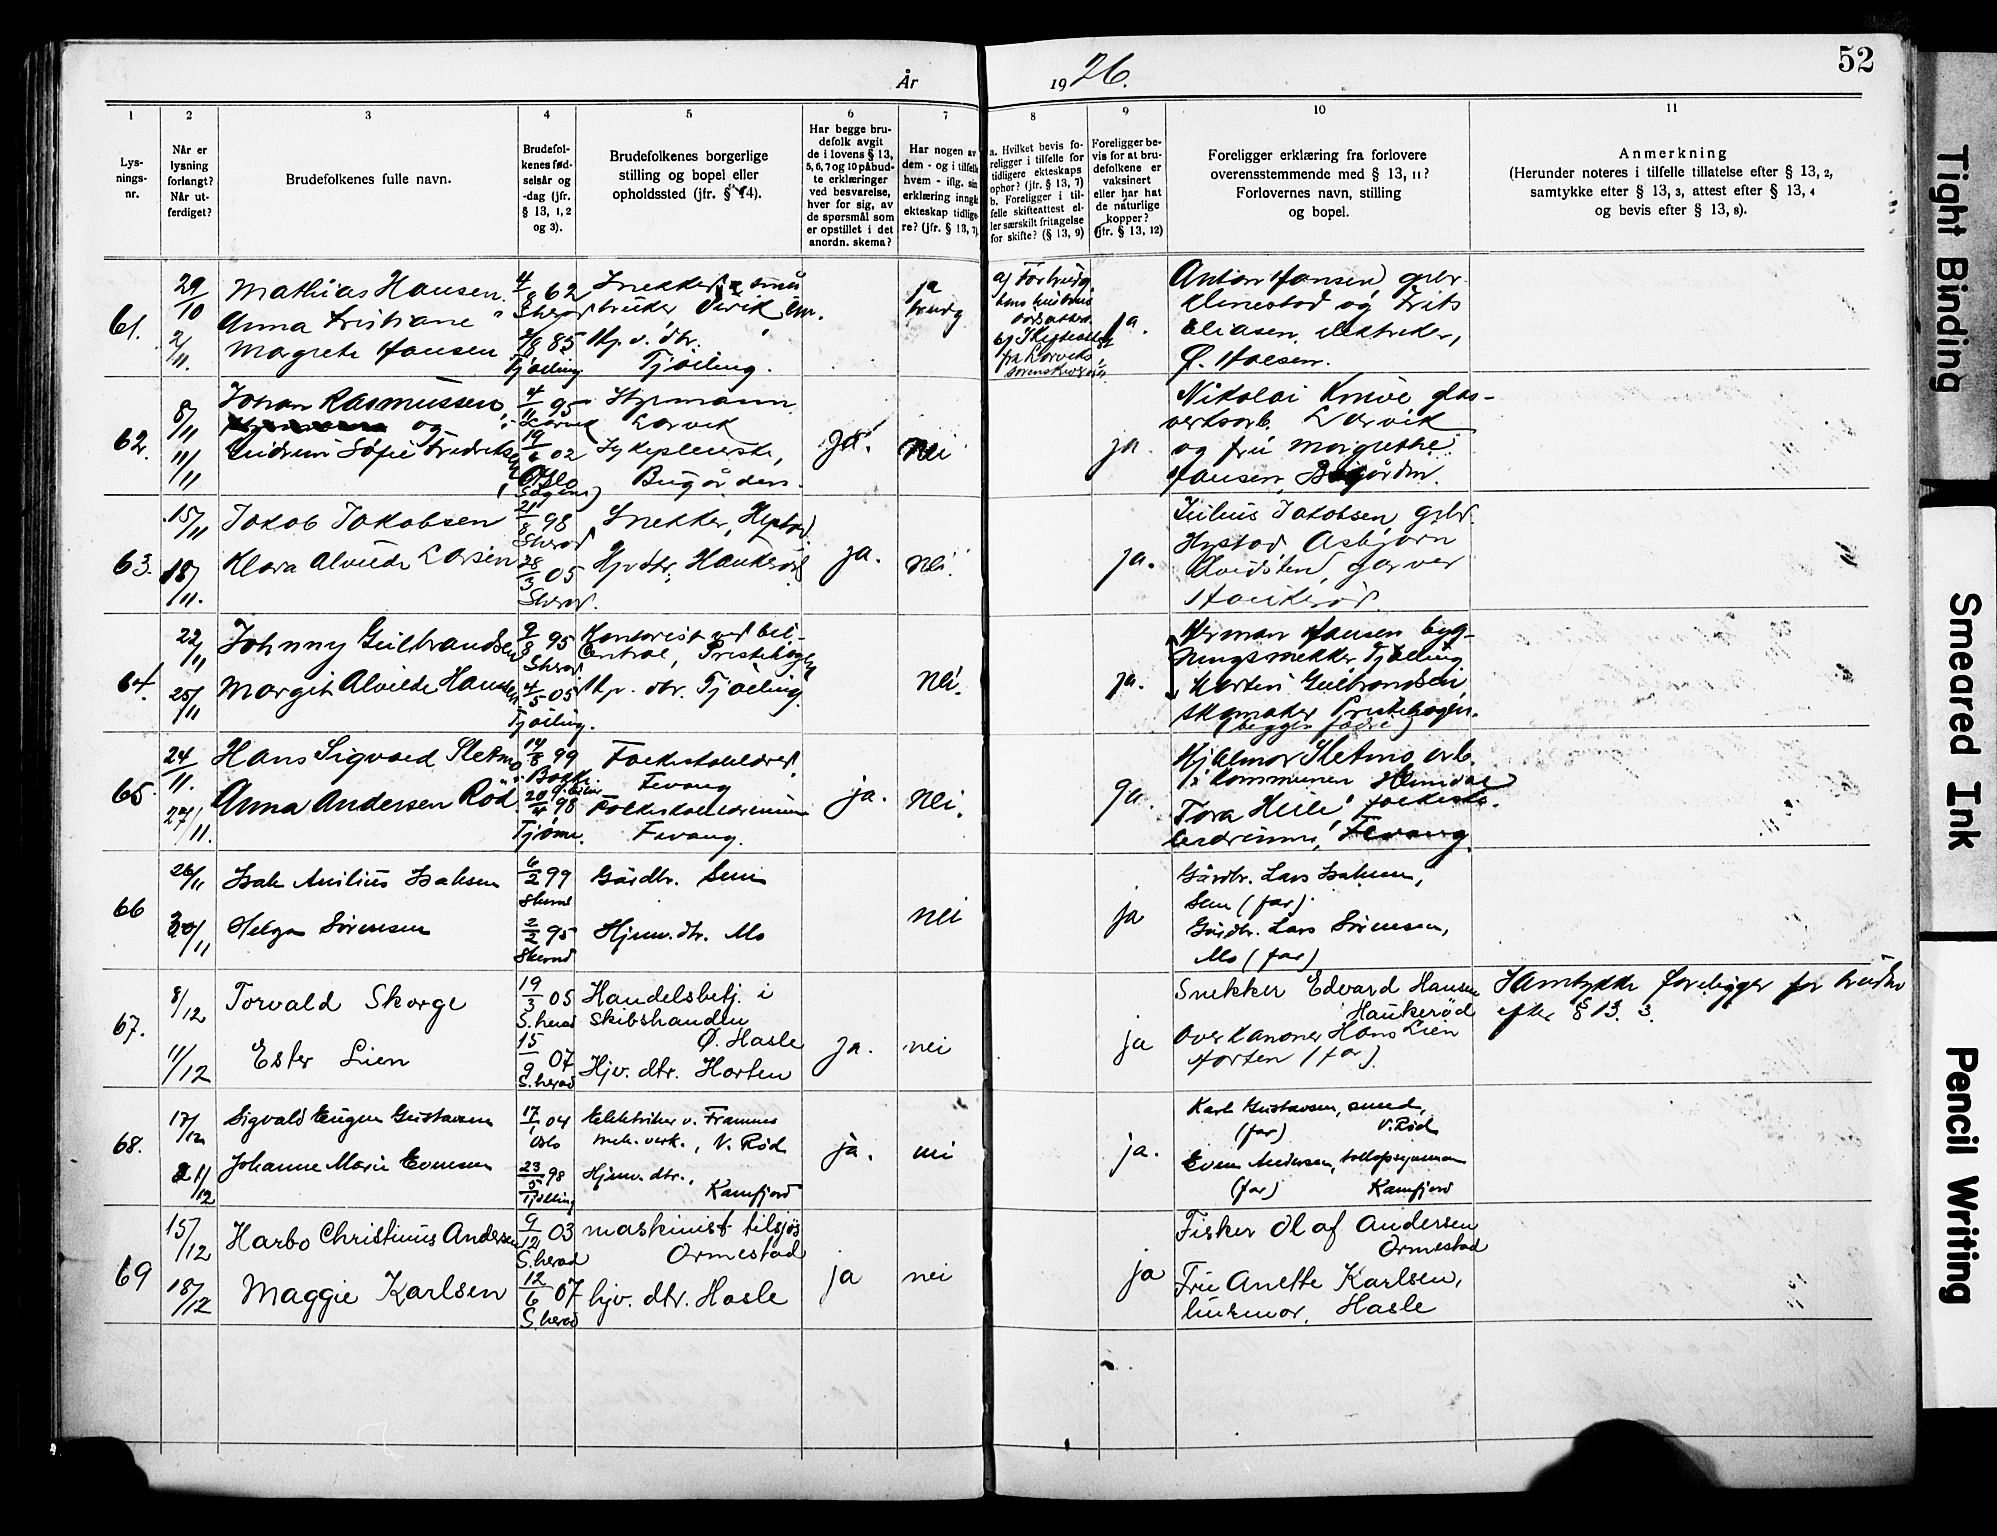 52
År
19 26.
1
2
3
4
5
6
7
8
9
10
11
Lys-
nings-
nr.
Når er
lysning
forlangt?
Når ut-
ferdiget?
Brudefolkenes fulle navn.
Brudefol-
kenes fød-
selsår og
-dag (jfr.
§ 13, 1, 2
og 3).
Brudefolkenes borgerlige
stilling og bopel eller
opholdssted (jfr. § 14).
Har begge bru-
defolk avgit
de i lovens § 13,
5, 6, 7 og 10 påbud-
te erklæringer
ved besvarelse,
hver for sig, av
de spørsmål som
er opstillet i det
anordn. skema?
Har nogen av
dem - og i tilfelle
hvem - iflg. sin
erklæring inngå
ekteskap tidlige-
re? (jfr. § 13, 7)
a. Hvilket bevis fo-
religger i tilfelle for
tidligere ekteskaps
ophør? (jfr. § 13, 7)
b. Foreligger i til-
felle skifteattest el-
ler særskilt fritagelse
for skifte? (§ 13, 9)
Foreligger be-
vis for at bru-
defolkene er
vaksinert
eller har hat
de naturlige
kopper?
(jfr. § 13, 12)
Foreligger erklæring fra forlovere
overensstemmende med § 13, 11?
Forlovernes navn, stilling
og bopel.
Anmerkning
(Herunder noteres i tilfelle tillatelse efter § 13, 2,
samtykke efter § 13, 3, attest efter § 13, 4
og bevis efter § 13, 8).
61.
29/10
2/11.
Mathias Hansen
Anna Kristiane
Margrete Hansen
4/8 62
S.herad
4/8 85
Tjølling
Snekker
bruker Virik
Hp. v. dtr.
Tjølling.
ja
brudg
a.
Anton Hansen
Klinestad og Frits
Eliasen, elektriker,
Ø. Halsen.
62.
8/11
11/11
Johan Rasmussen,
og
Gudrun Sofie Fredriksen
4/11 95
Larvik
19/6 02
Oslo
Hyrmann
Larvik
Sykepleierske,
Bugården.
ja.
nei
ja.
Nikolai Knive glas-
verksarb. Larvik
og fru Margrethe
Hansen, Bugården.
63.
15/11
18/11.
Jakob Jakobsen
Klara Alvilde Larsen
21/8 98
S.herad
28/3 05
S.herad.
Snekker, Hystad
Hjv dtr, Haukerød
ja.
nei.
ja.
Julius Jakobsen,
Hystad Asbjørn
garver
Haukerød.
64.
22/11
25/11
Johnny Gulbrandsen
Margit Alvilde Hansen
9/8 95
S.herad
4/5 05
Tjølling.
Kontorist ved bil-
central, Prestehagen
Hp. dtr. Tjølling.
nei.
ja.
Herman Hansen byg-
ningssnekker Tjølling
Gulbrandsen,
skomaker Prestehagen.
(begges fedre)
65.
24/11.
27/11.
Hans Sigvard Sletmo
Anna Andersen Rød
14/8 99
Bakke
20/4 98
Tjøme.
Folkeskolelærer,
Fevang
Folkeskolelærerinne
Fevang.
ja.
nei.
ja.
Hjalmar Sletmo arb.
i kommunen
Tora Heile, folkesko-
lærerinne, Fevang.
66
26/11
30/11
Isak Anilius Isaksen
Helga Sørensen
6/2 99
S.herad
2/2 95
S.herad
Gårdbr. Sem
Hjemv. dtr. Mo
nei
ja
Gårdbr. Lars Isaksen,
Sem (far).
Gårdbr. Lars Sørensen,
Mo (far)
67.
8/12
11/12
Torvald Skorge
Ester Lien
19/3 05
S.herad
15/9 07
S.herad
Handelsbetj. i
skibshandlen
Ø. Hasle
Hjv. dtr. Horten
ja.
nei
ja
Snekker Edvard Hansen
Haukerød
Overkanoner Hans Lien
Horten (far).
Samtykke foreligger for bruden
efter § 13. 3.
68.
17/12
21/12
Sigvald Eugen Gustavsen
Johanne Marie Evensen
17/1 04
Oslo
23/5 98
Tjølling
Elektriker v. Framnes
mek. verk., V. Rød
Hjemv. dtr.,
Kamfjord
ja.
nei
ja.
Karl Gustavsen, smed,
(far) V. Rød
Even Andersen, tollopsynsman
(far) Kamfjord
69
15/12
18/12
Harbo Christinius Andersen
Maggie Karlsen
9/12 03
S.herad
12/6 07
S.herad
maskinist tilsjøs
Ormestad
hjv. dtr. Hasle
ja
nei
ja
Fisker Olaf Andersen
Ormestad
Fru Anette Karlsen,
husmor, Hasle
Tight Binding
Smeared Ink
Pencil Writing